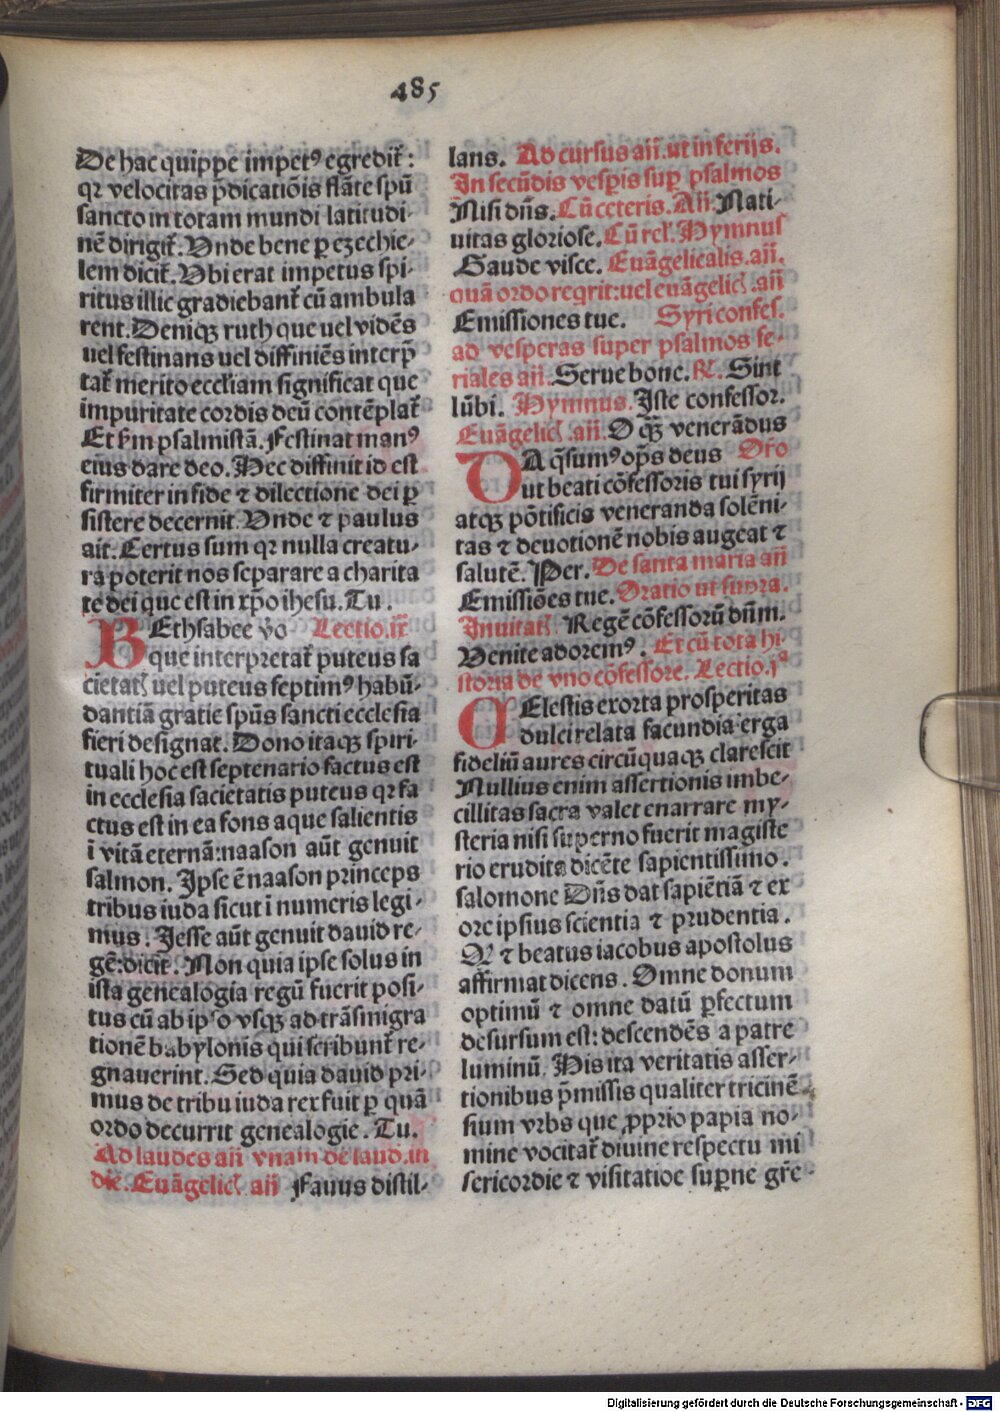 485
De hac quippe impetꝰ egredit̃ :
qꝛ velocitas p̃dicatiõis flãte spũ
sancto in totam mundi latitudi⸗
nẽ dirigit̃. Vnde bene ꝑ ezechie⸗
lem dicit̃. Vbi erat impetus spi⸗
ritus illic gradiebant̃ cũ ambula
rent. Deniqꝫ ruth que uel vidẽs
uel festinans uel diffiniẽs interp̃
tat̃ merito eccl̃iam significat que
impuritate cordis deũ contẽplat̃
Et s̃m psalmistã. Festinat manꝰ
eius dare deo. Hec diffinit id est
firmiter in fide ⁊ dilectione dei ꝑ
sistere decernit. Vnde ⁊ paulus
ait. Certus sum qꝛ nulla creatu⸗
ra poterit nos separare a charita
te dei que est in xp̃o ihesu. Tu .
BEthsabee v̊o Lectio.iij̃
que interpretat̃ puteus sa
cietatꝭ uel puteus septimꝰ habũ⸗
dantiã gratie spũs sancti ecclesia
fieri designat. Dono itaqꝫ spiri⸗
tuali hoc est septenario factus est
in ecclesia sacietatis puteus qꝛ fa
ctus est in ea fons aque salientis
ĩ vitã eternã:naason aũt genuit
salmon. Ipse ẽ naason princeps
tribus iuda sicut ĩ numeris legi⸗
mus . Jesse aũt genuit dauid re⸗
gẽ:dicit̃. Non quia ipse solus in
ista genealogia regũ fuerit posi⸗
tus cũ ab ipso vsqꝫ ad trãsmigra
tionẽ babylonis qui scribunt̃ re⸗
gnauerint. Sed quia dauid pri⸗
mus de tribu iuda rex fuit ꝑ quã
ordo decurrit genealogie . Tu.
Ad laudes añ vnam de laud.in
die. Euãgelicꝭ añ Fauus distil⸗
lans. Ad cursus añ. ut in ferijs.
In secũdis vesꝑis suꝑ psalmos
Nisi dñs. Cũ ceteris. Añ. Nati⸗
uitas gloriose. Cũ rel̃. Hymnus
Gaude visce. Euãgelicalis.añ.
quã ordo reqrit:uel euãgelicꝭ.añ
Emissiones tue. Syri confes.
ad vesperas super psalmos fe⸗
riales añ. Serue bone. ℟. Sint
lũbi. Hymnus. Iste confessor.
Euãgelicꝭ .añ. O qꝫ venerãdus
DA q̃sumꝰ op̃s deus Oro
ut beati cõfessoris tui syrij
atqꝫ põtificis veneranda solẽni⸗
tas ⁊ deuotionẽ nobis augeat ⁊
salutẽ. Per. De santa maria añ
Emissiões tue. Oratio ut supra.
Inuitatꝭ. Regẽ cõfessorũ dñm.
Venite adoremꝰ . Et cũ tota hi⸗
storia de vno cõfessore. Lectio.jª
CElestis exorta prosperitas
dulci relata facundia erga
fideliũ aures circũquaqꝫ clarescit
Nullius enim assertionis imbe⸗
cillitas sacra valet enarrare my⸗
steria nisi superno fuerit magiste
rio erudita dicẽte sapientissimo .
salomone Dñs dat sapiẽtiã ⁊ ex
ore ipsius scientia ⁊ prudentia .
Qꝛ ⁊ beatus iacobus apostolus
affirmat dicens . Omne donum
optimũ ⁊ omne datũ ꝑfectum
desursum est: descendẽs a patre
luminũ. His ita veritatis asser⸗
tionibus p̃missis qualiter tricinẽ⸗
sium vrbs que ꝓprio papia no⸗
mine vocitat̃ diuine respectu mi
sericordie ⁊ visitatiõe suꝑne gr̃e ⸗
Digitalisierung gefördert durch die Deutsche Forschungsgemeinschaft - DFG